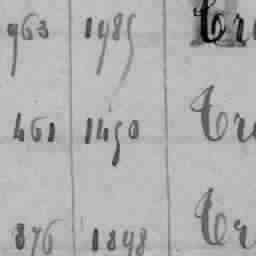 963 1985 Cre
461 1450 Cre
876 1898 Cre